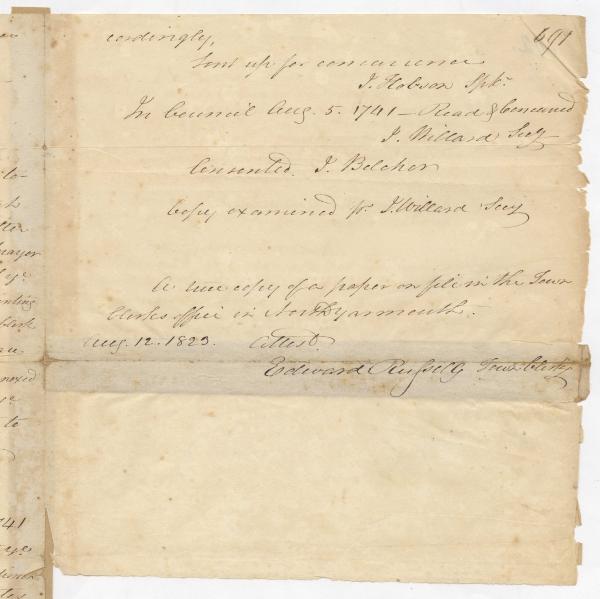 691
cordingly,
Sent up for concurrence
J. Hobson Spkr.
In Council Aug. 5. 1741 — Read & Concurred
J. Willard Secy
Consented. J. Belcher
Copy examined pr J. Willard Secy
A true copy of a paper on file in the Town
Clerks office in North Yarmouth.
Aug. 12. 1823. Attest.
Edward Russell Town Clerk
to
741